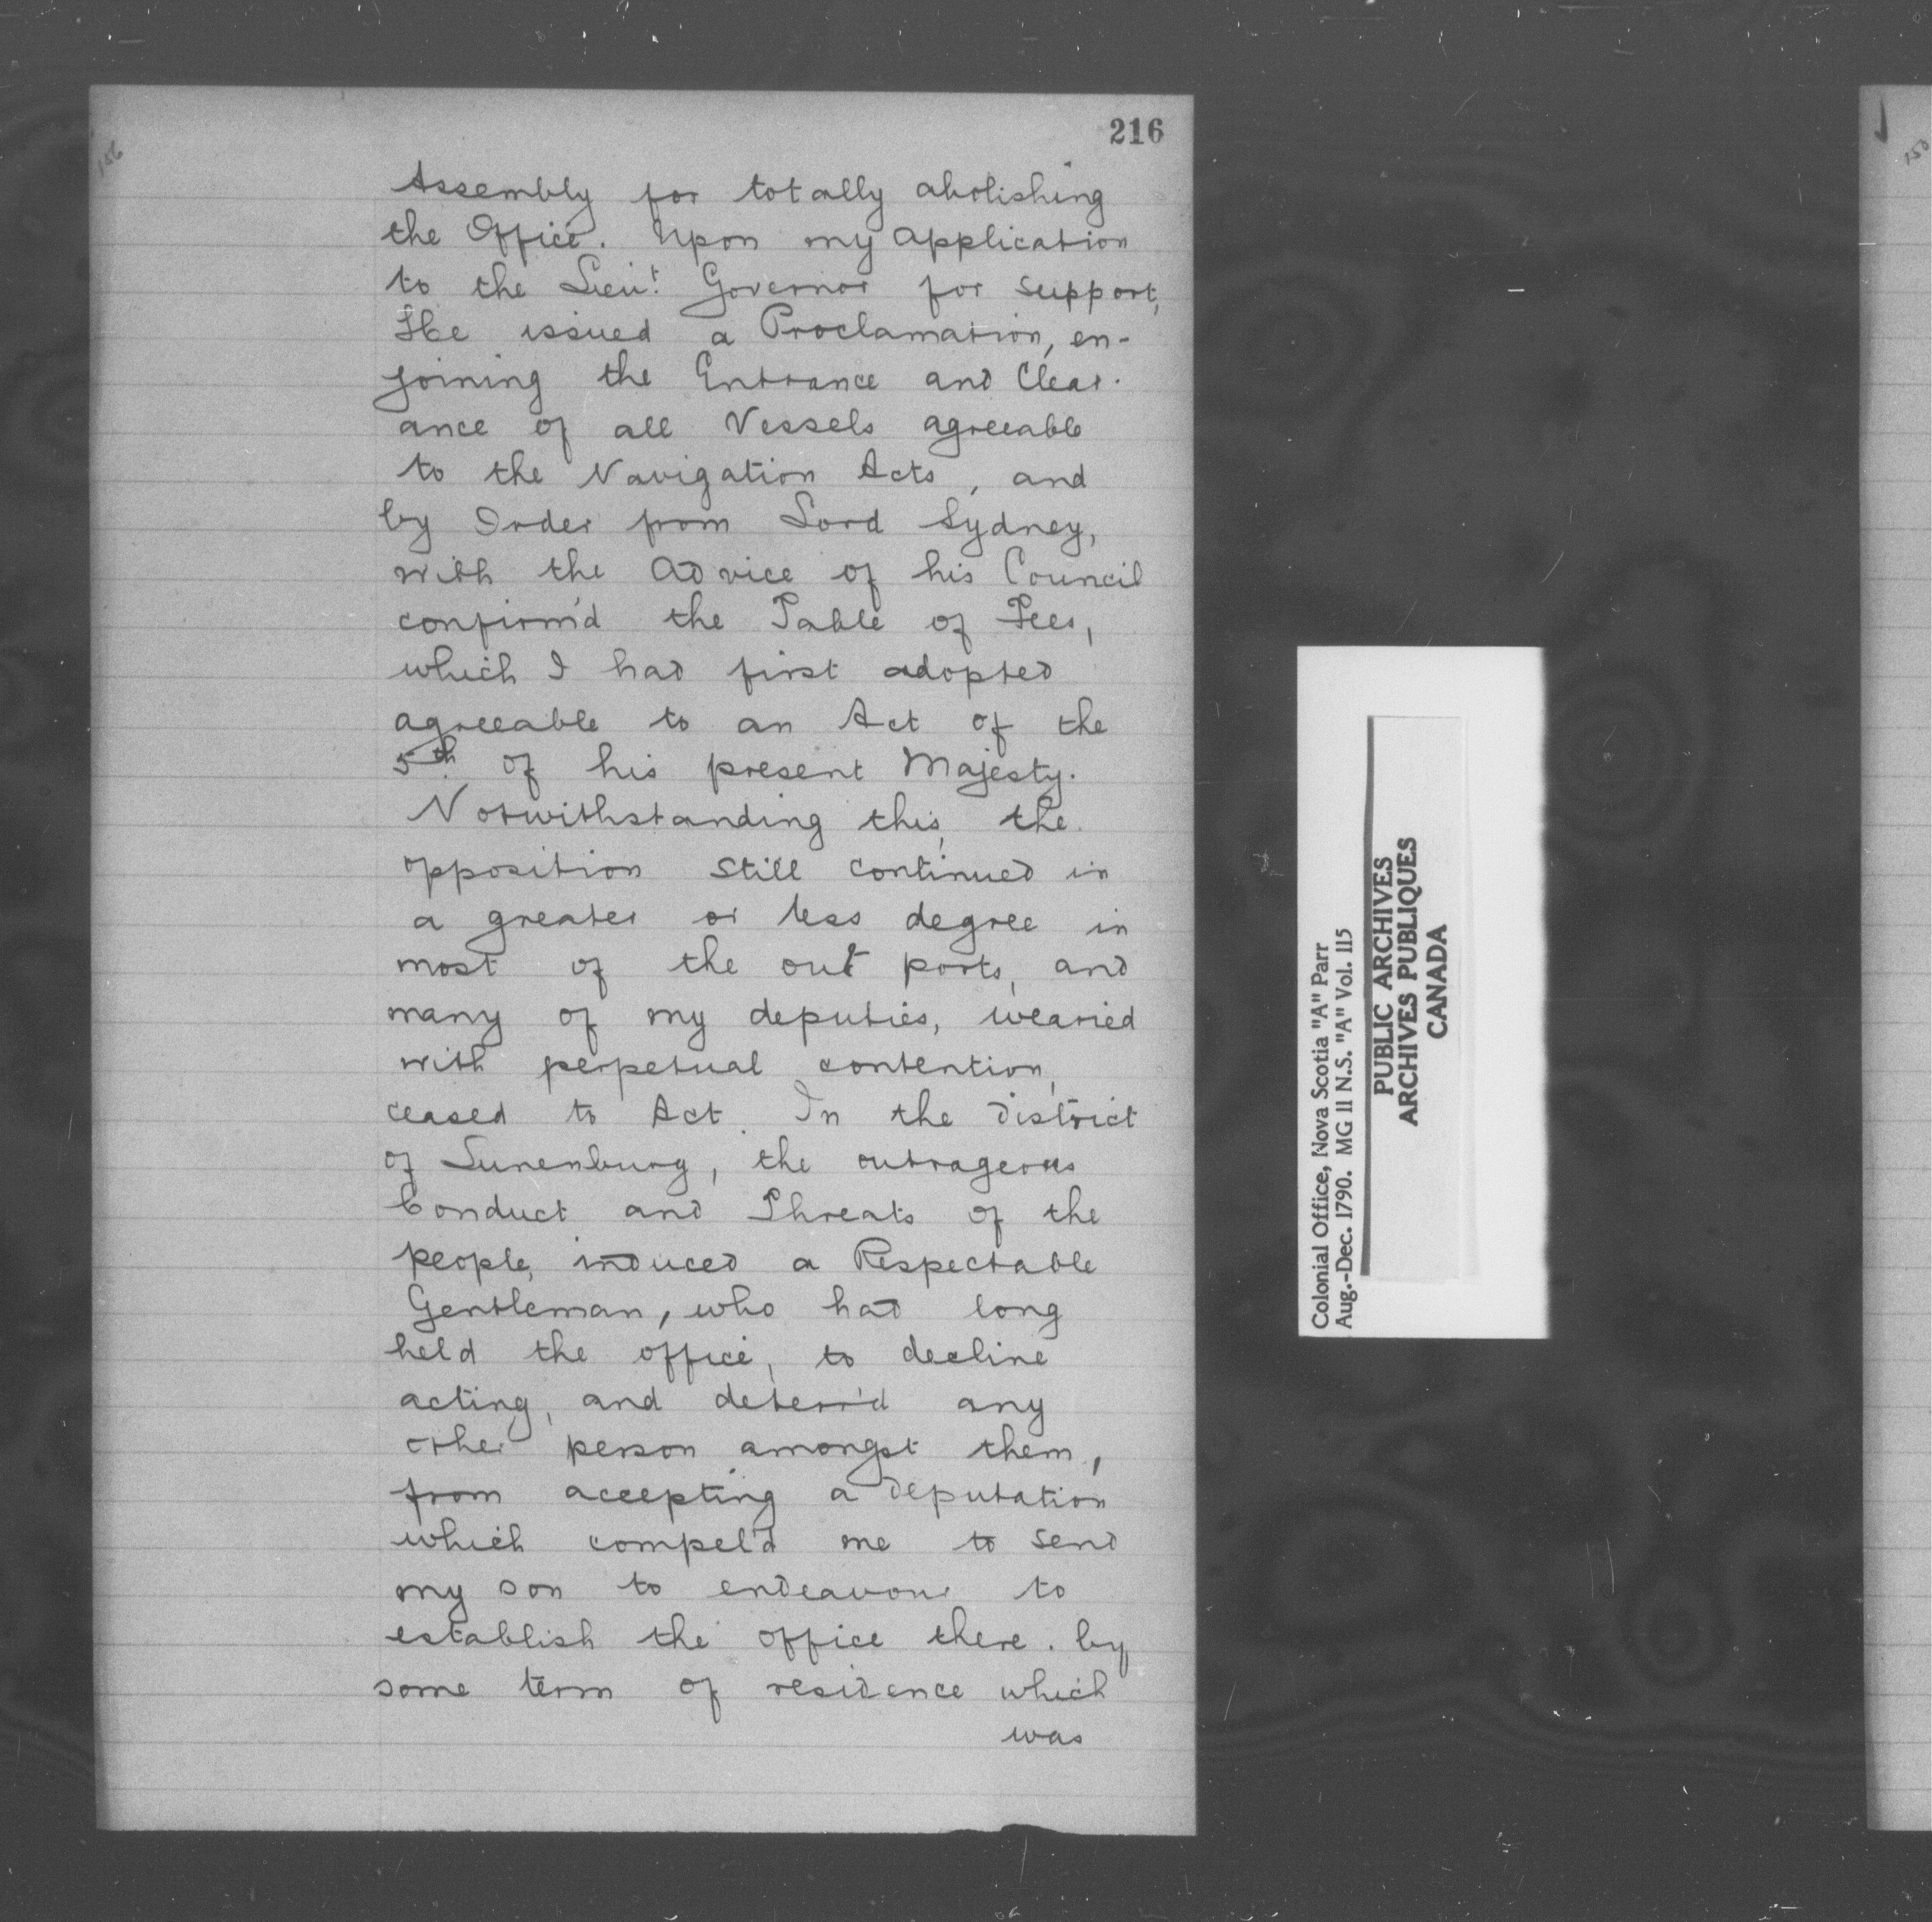 216
156
Assembly for totally abolishing
the Office. Upon my Application
to the Lieu.t Governor for support,
He issued a Proclamation, en-
joining the Entrance and Clear-
ance of all Vessels agreeable
to the Navigation Acts, and
by Order from Lord Sydney,
with the Advice of his Council
confirm'd the Table of Fees,
which I had first adopted
agreeable to an Act of the
5th of his present Majesty.
Notwithstanding this, the
opposition still continued in
a greater or less degree in
most of the out ports, and
many of my deputies, wearied
with perpetual contention,
ceased to Act. In the District
of Lunenburg, the outrageous
Conduct and Threats of the
people, induced a Respectable
Gentleman, who had long
held the office, to decline
acting, and deterr'd any
other person amongst them,
from accepting a Deputation
which compel'd me to send
my son to endeavour to
establish the office there. by
some term of residence which
was
Colonial Office, Nova Scotia "A" Parr
Aug.-Dec. 1790. MG 11 N.S. "A" Vol. 115
PUBLIC ARCHIVES
ARCHIVES PUBLIQUES
CANADA